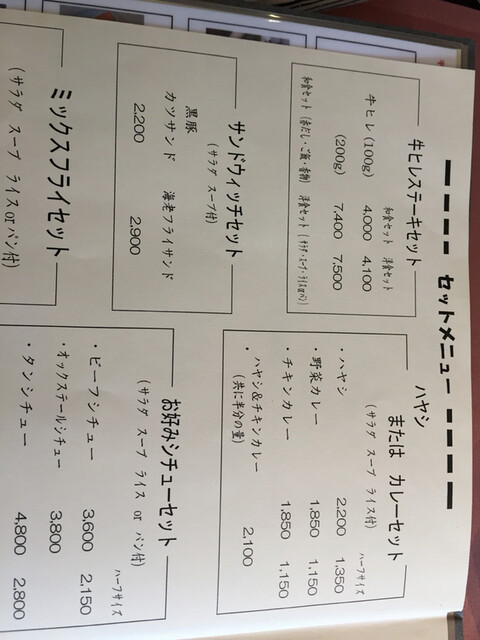 セットメニュー
牛ヒレステーキセット
和食セット 洋食セット
牛ヒレ (100g) 4,000 4,100
(200g) 7,400 7,500
和食セット (赤だし・ご飯・香物) 洋食セット (サラダ・スープ・ライスorパン)
サンドウィッチセット
(サラダ スープ付)
黒豚
カツサンド 海老フライサンド
2,200 2,900
ミックスフライセット
(サラダ スープ ライスorパン付)
ハヤシ
または カレーセット
(サラダ スープ ライス付) ハーフサイズ
・ハヤシ 2,200 1,350
・野菜カレー 1,850 1,150
・チキンカレー 1,850 1,150
・ハヤシ&チキンカレー 2,100
(共に半分の量)
お好みシチューセット
(サラダ スープ ライス or パン付)
ハーフサイズ
・ビーフシチュー 3,600 2,150
・オックステールシチュー 3,800
・タンシチュー 4,800 2,800